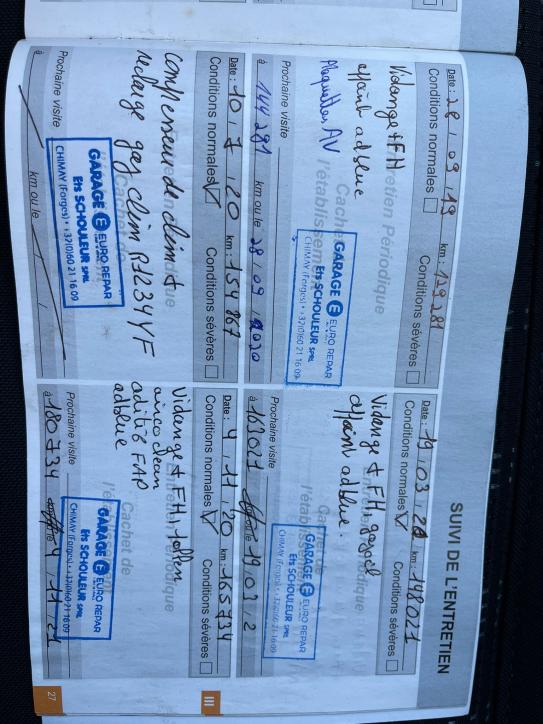 SUIVI DE L'ENTRETIEN
Date : 28 / 09 / 19 km : 129281
Conditions normales Conditions sévères
Vidange + FH
appoint adblue
Plaquettes AV
Entretien Périodique
Cachet de
l'établissement
GARAGE EURO REPAR
Ets SCHOULEUR SPRL
CHIMAY (Forges) • +32(0)60 21 16 09
Prochaine visite
à 144281 km ou le 28 / 09 / 2020
Date : 19 / 03 / 20 km : 148021
Conditions normales Conditions sévères
Vidange + FH
appoint adblue.
Cachet de
l'établissement
GARAGE EURO REPAR
Ets SCHOULEUR SPRL
CHIMAY (Forges) • +32(0)60 21 16 09
Prochaine visite
à 163021 19 03 2
Date : 10 / 7 / 20 km : 154867
Conditions normales Conditions sévères
compresseur de clim +
recharge gaz clim R1234YF
Cachet de
GARAGE EURO REPAR
Ets SCHOULEUR SPRL
CHIMAY (Forges) • +32(0)60 21 16 09
Prochaine visite
à km ou le
Date : 4 / 11 / 20 km : 165734
Conditions normales Conditions sévères
Vidange + FH,
airco clean
additif FAP
adblue
Entretien Périodique
Cachet de
GARAGE EURO REPAR
Ets SCHOULEUR SPRL
CHIMAY (Forges) • +32(0)60 21 16 09
Prochaine visite
à 180734 4 11 21
III
27